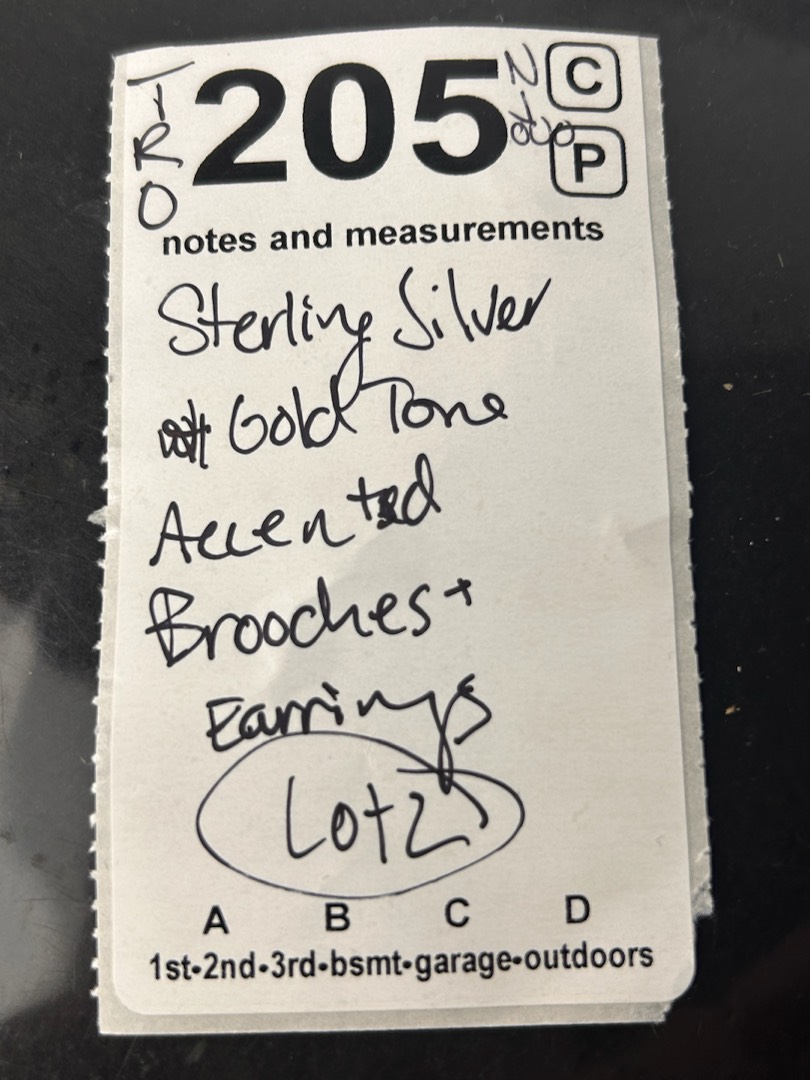 TIRO
205
C
P
notes and measurements
Sterling Silver
Gold Tone
Accented
Brooches +
Earrings
Lot 2
A B C D
1st•2nd•3rd•bsmt•garage•outdoors